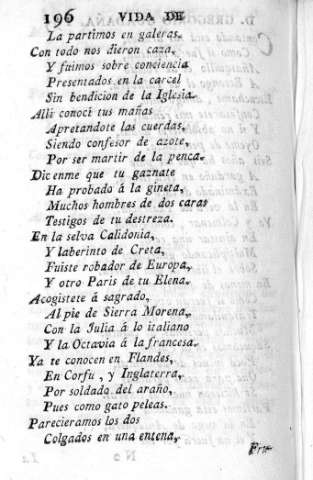 196 VIDA DE
La partimos en galeras.
Con todo nos dieron caza,
Y fuimos sobre conciencia
Presentados en la carcel
Sin bendicion de la Iglesia.
Alli conocì tus mañas
Apretandote las cuerdas,
Siendo confesor de azote,
Por ser martir de la penca.
Dicenme que tu gaznate
Ha probado á la gineta,
Muchos hombres de dos caras
Testigos de tu destreza.
En la selva Calidonia,
Y laberinto de Creta,
Fuiste robador de Europa,
Y otro Paris de tu Elena.
Acogistete á sagrado,
Al pie de Sierra Morena,
Con la Julia á lo italiano
Y la Octavia á la francesa.
Ya te conocen en Flandes,
En Corfu, y Inglaterra,
Por soldado del araño,
Pues como gato peleas.
Parecieramos los dos
Colgados en una entena,